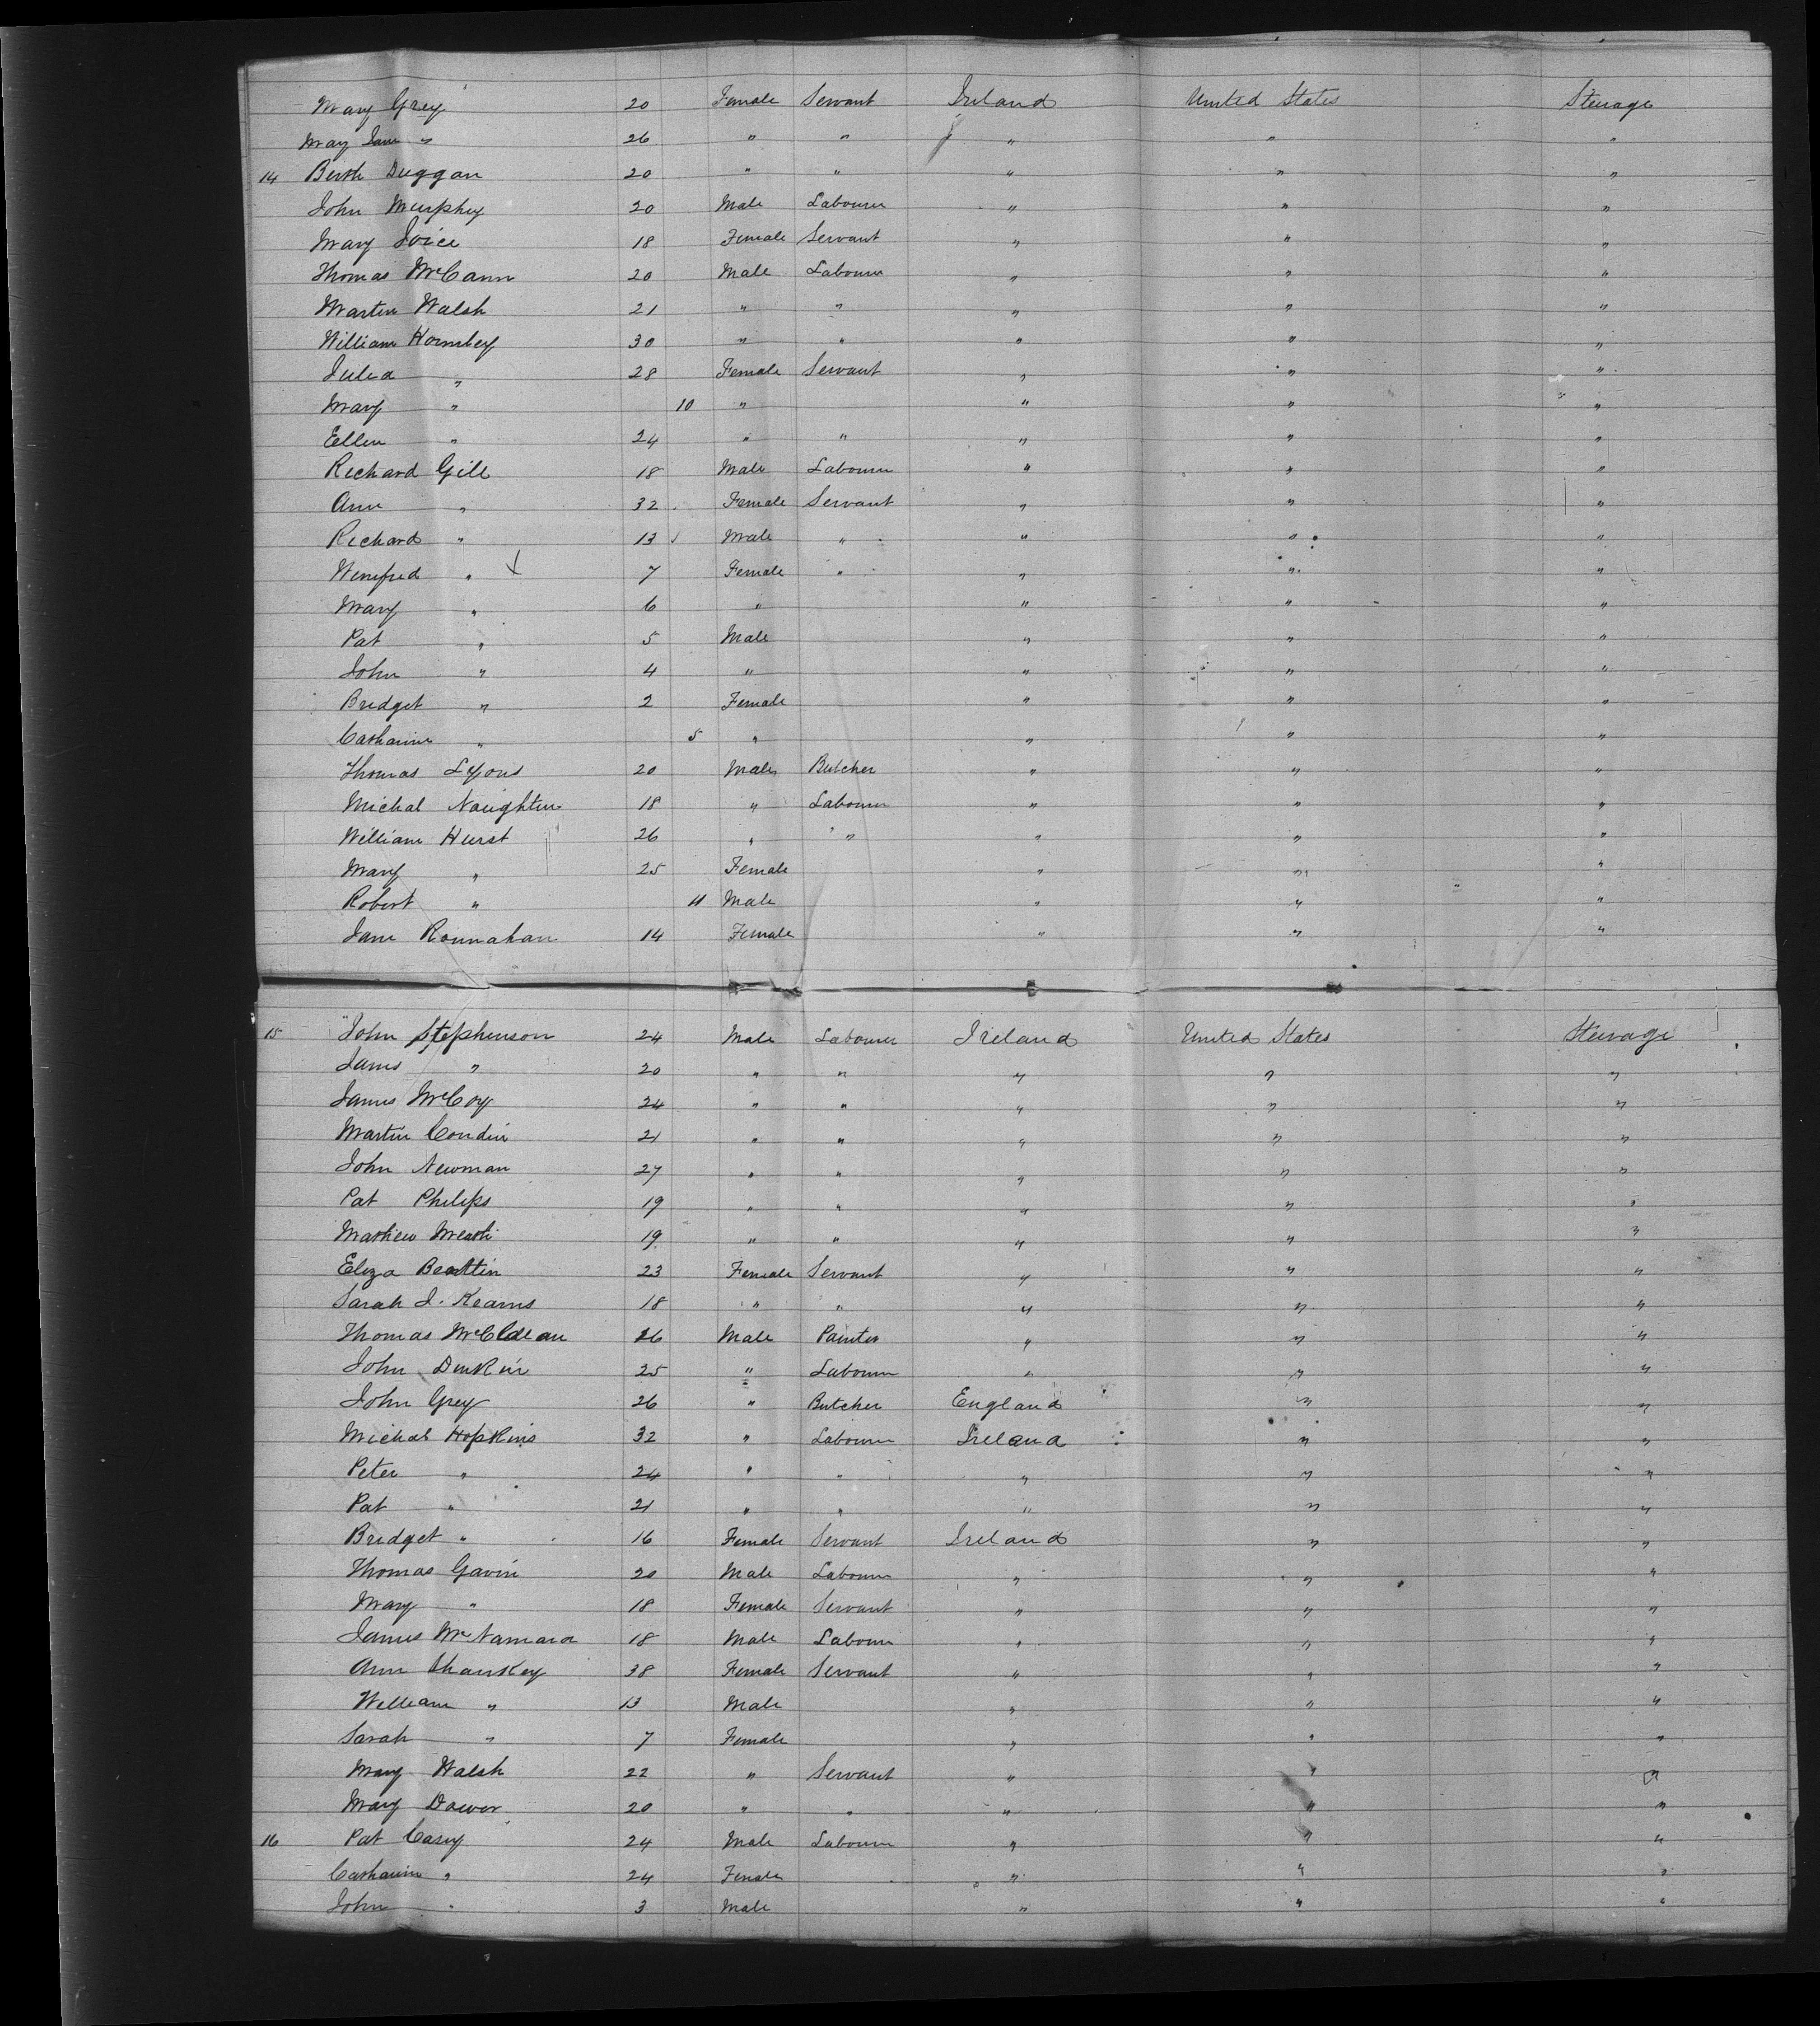 Mary Grey 20 Female Servant Ireland United States Steerage
Mary Jane " 26 " " " " "
14 Birth Duggan 20 " " " " "
John Murphy 20 Male Labourer " " "
Mary Joice 18 Female Servant " " "
Thomas McCann 20 Male Labourer " " "
Martin Walsh 21 " " " " "
William Hornbey 30 " " " " "
Julia " 28 Female Servant " " "
Mary " 10 " " " "
Ellen " 24 " " " " "
Richard Gill 18 Male Labourer " " "
Ann " 32 Female Servant " " "
Richard " 13 Male " " " "
Winifred " 7 Female " " " "
Mary " 6 " " " "
Pat " 5 Male " " "
John " 4 " " " "
Bridget " 2 Female " " "
Catharine " 5 " " " "
Thomas Lyons 20 Male Butcher " " "
Michal Naughton 18 " Labourer " " "
William Hurst 26 " " " " "
Mary " 25 Female " " "
Robert " 11 Male " " "
Jane Rounahan 14 Female " " "
15 John Stephenson 24 Male Labourer Ireland United States Steerage
James " 20 " " " " "
James McCoy 24 " " " " "
Martin Condin 21 " " " " "
John Newman 27 " " " " "
Pat Philips 19 " " " " "
Mathew 19 " " " " "
Eliza Beattin 23 Female Servant " " "
Sarah J. Kearns 18 " " " " "
Thomas 26 Male Painter " " "
John Durkin 25 " Labourer " " "
John Grey 26 " Butcher England " "
Michal Hopkins 32 " Labourer Ireland " "
Peter " 24 " " " " "
Pat " 21 " " " " "
Bridget " 16 Female Servant Ireland " "
Thomas Gavin 20 Male Labourer " " "
Mary " 18 Female Servant " " "
James McNamara 18 Male Labourer " " "
Ann Shankey 38 Female Servant " " "
William " 13 Male " " "
Sarah " 7 Female " " "
Mary Walsh 22 " Servant " " "
Mary Dower 20 " " " " "
16 Pat Casey 24 Male Labourer " " "
Catharine " 24 Female " " "
John " 3 Male " " "